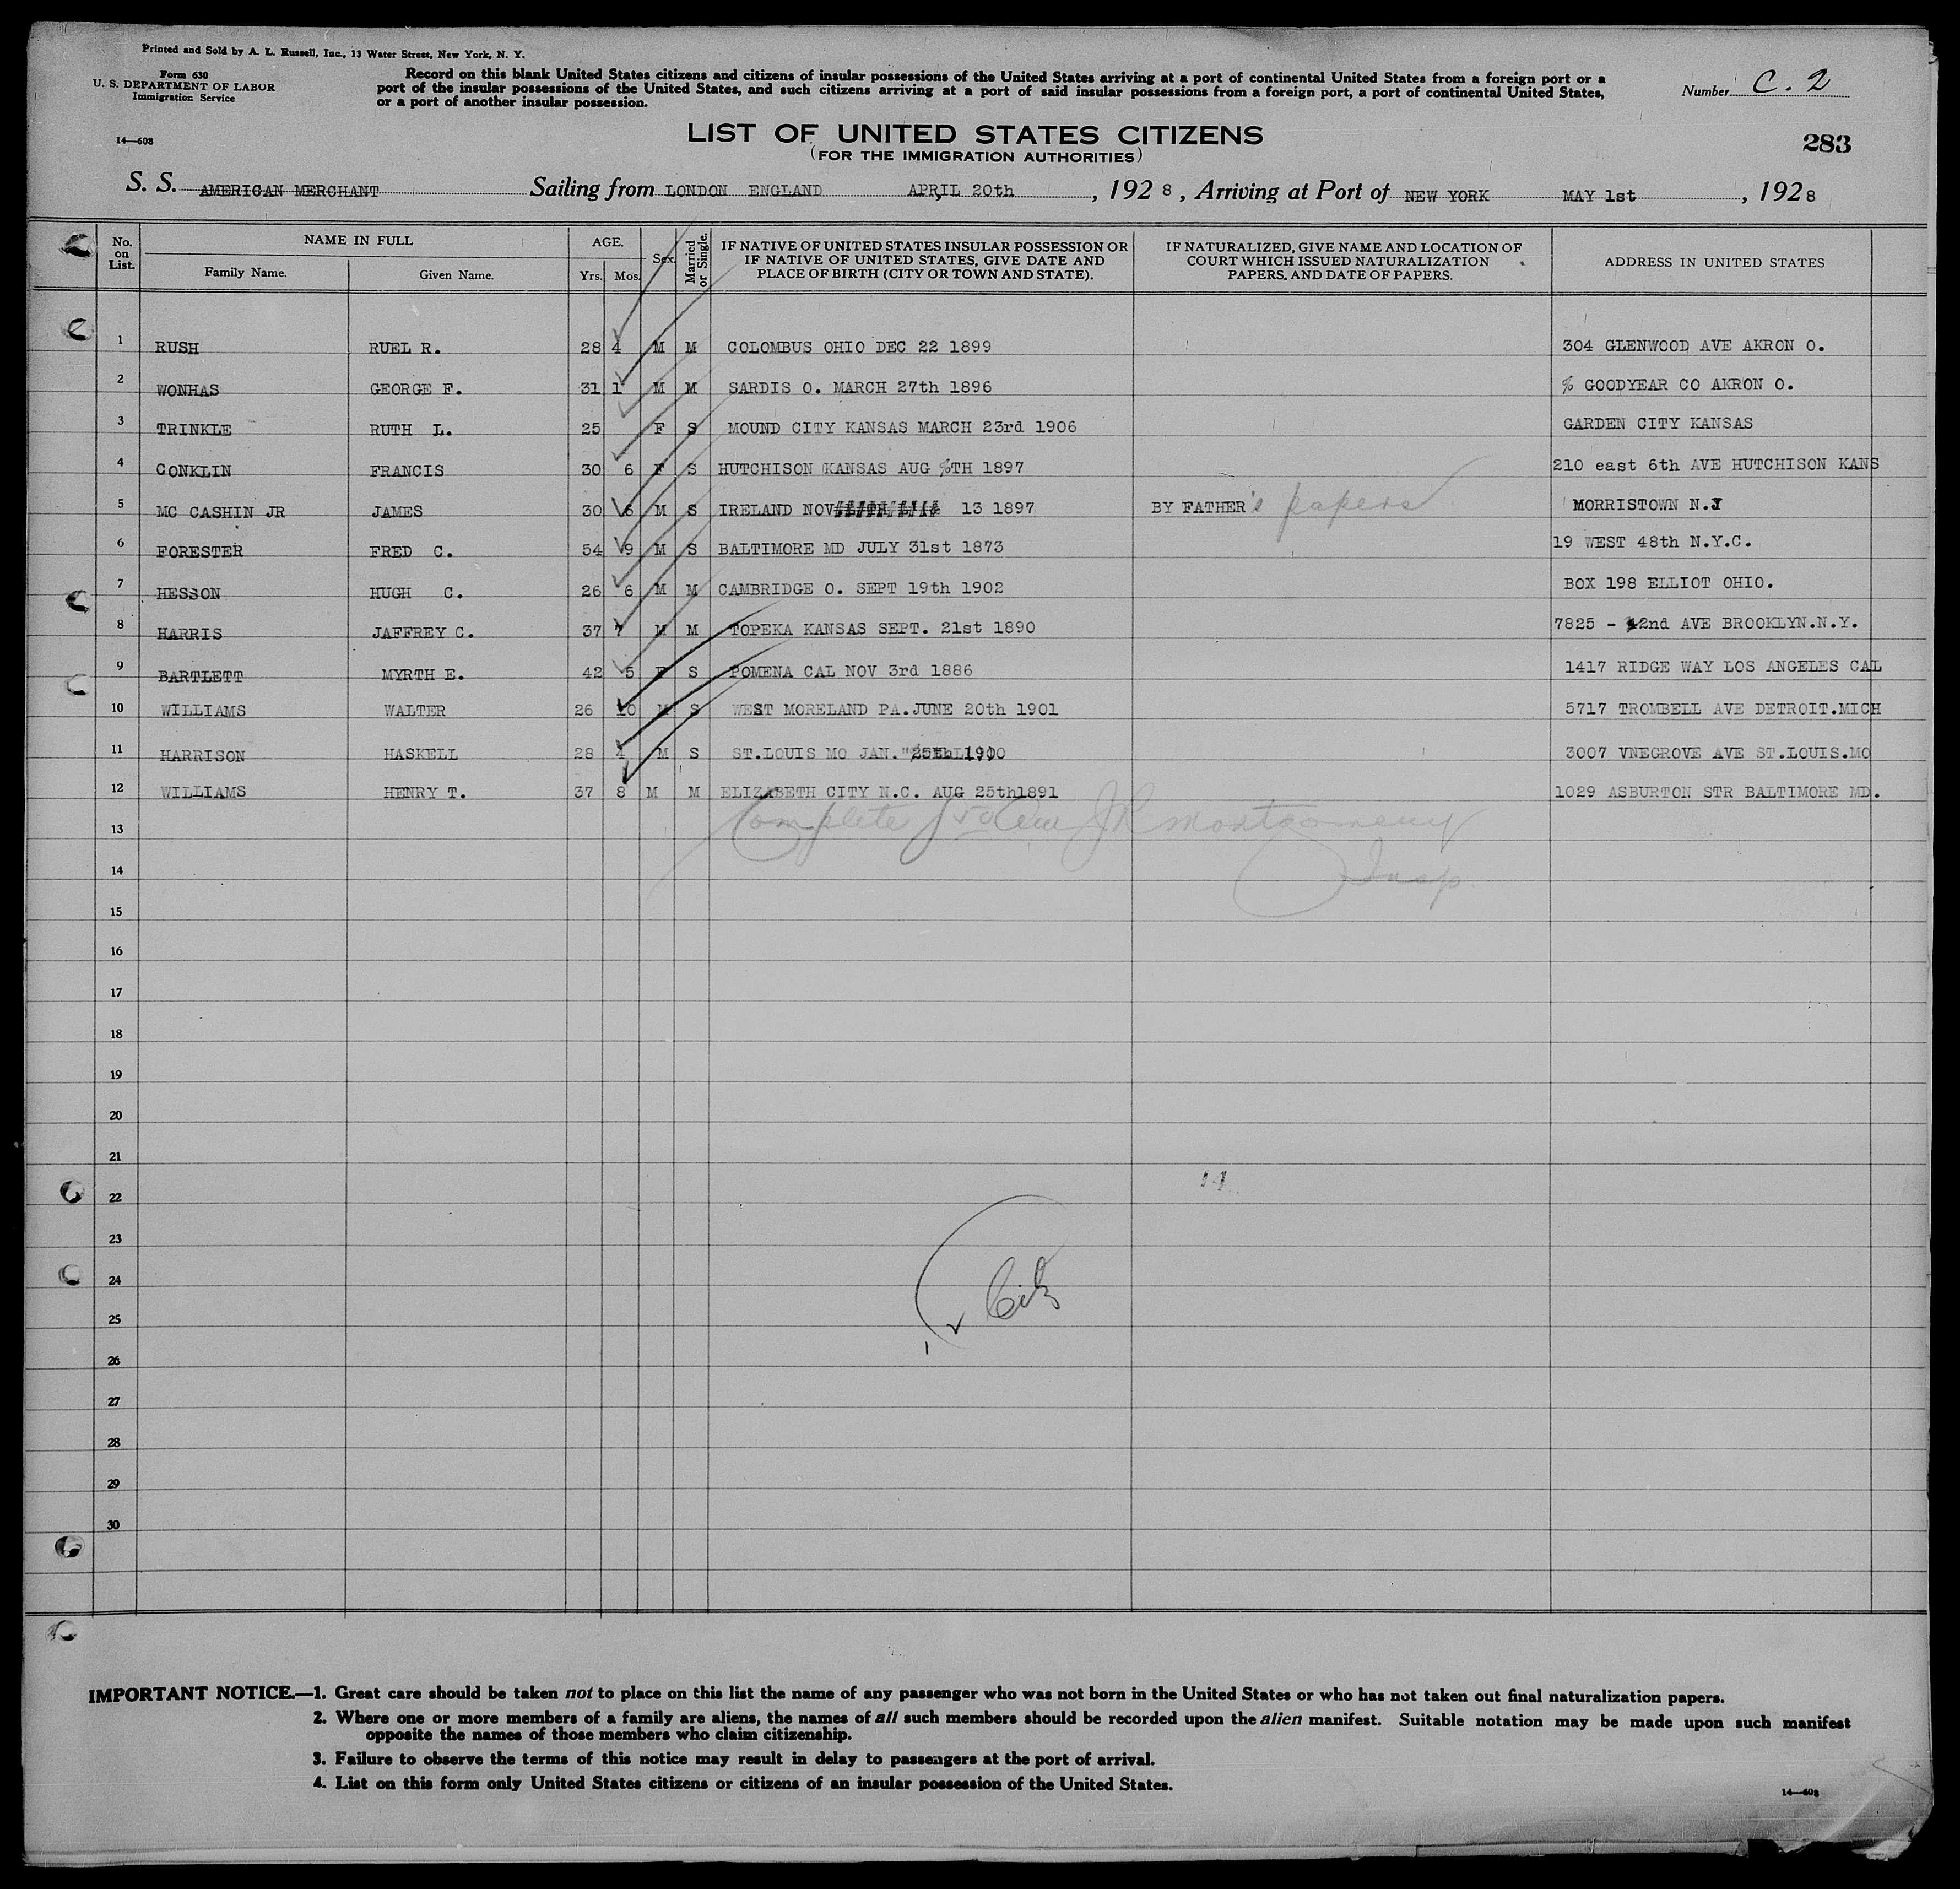 Printed and Sold by A. L. Russell, Inc., 13 Water Street, New York, N. Y.
Form 630
U. S. DEPARTMENT OF LABOR
Immigration Service
Record on this blank United States citizens and citizens of insular possessions of the United States arriving at a port of continental United States from a foreign port or a
port of the insular possessions of the United States, and such citizens arriving at a port of said insular possessions from a foreign port, a port of continental United States,
or a port of another insular possession.
Number C. 2
14—608
LIST OF UNITED STATES CITIZENS
(FOR THE IMMIGRATION AUTHORITIES)
283
S. S. AMERICAN MERCHANT Sailing from LONDON ENGLAND APRIL 20th, 1928, Arriving at Port of NEW YORK MAY 1st, 1928
No. on List. NAME IN FULL Family Name. Given Name. AGE. Yrs. Mos. Sex. Married or Single. IF NATIVE OF UNITED STATES INSULAR POSSESSION OR IF NATIVE OF UNITED STATES, GIVE DATE AND PLACE OF BIRTH (CITY OR TOWN AND STATE). IF NATURALIZED, GIVE NAME AND LOCATION OF COURT WHICH ISSUED NATURALIZATION PAPERS. AND DATE OF PAPERS. ADDRESS IN UNITED STATES
1 RUSH RUEL R. 28 4 M M COLOMBUS OHIO DEC 22 1899 304 GLENWOOD AVE AKRON O.
2 WONHAS GEORGE F. 31 1 M M SARDIS O. MARCH 27th 1896 % GOODYEAR CO AKRON O.
3 TRINKLE RUTH L. 25 F S MOUND CITY KANSAS MARCH 23rd 1906 GARDEN CITY KANSAS
4 CONKLIN FRANCIS 30 6 F S HUTCHISON KANSAS AUG TH 1897 210 east 6th AVE HUTCHISON KANS
5 MC CASHIN JR JAMES 30 6 M S IRELAND NOV 13 1897 BY FATHER's papers MORRISTOWN N.J
6 FORESTER FRED C. 54 9 M S BALTIMORE MD JULY 31st 1873 19 WEST 48th N.Y.C.
7 HESSON HUGH C. 26 6 M M CAMBRIDGE O. SEPT 19th 1902 BOX 198 ELLIOT OHIO.
8 HARRIS JAFFREY C. 37 7 M M TOPEKA KANSAS SEPT. 21st 1890 7825 - 2nd AVE BROOKLYN.N.Y.
9 BARTLETT MYRTH E. 42 5 F S POMENA CAL NOV 3rd 1886 1417 RIDGE WAY LOS ANGELES CAL
10 WILLIAMS WALTER 26 10 M S WEST MORELAND PA.JUNE 20th 1901 5717 TROMBELL AVE DETROIT.MICH
11 HARRISON HASKELL 28 4 M S ST.LOUIS MO JAN. 25th 1900 3007 VNEGROVE AVE ST.LOUIS.MO
12 WILLIAMS HENRY T. 37 8 M M ELIZABETH CITY N.C. AUG 25th1891 1029 ASBURTON STR BALTIMORE MD.
13 Complete JR Montgomery
14 Insp.
15
16
17
18
19
20
21
22
23
24 Citz
25
26
27
28
29
30
IMPORTANT NOTICE.—1. Great care should be taken not to place on this list the name of any passenger who was not born in the United States or who has not taken out final naturalization papers.
2. Where one or more members of a family are aliens, the names of all such members should be recorded upon the alien manifest. Suitable notation may be made upon such manifest
opposite the names of those members who claim citizenship.
3. Failure to observe the terms of this notice may result in delay to passengers at the port of arrival.
4. List on this form only United States citizens or citizens of an insular possession of the United States.
14—608